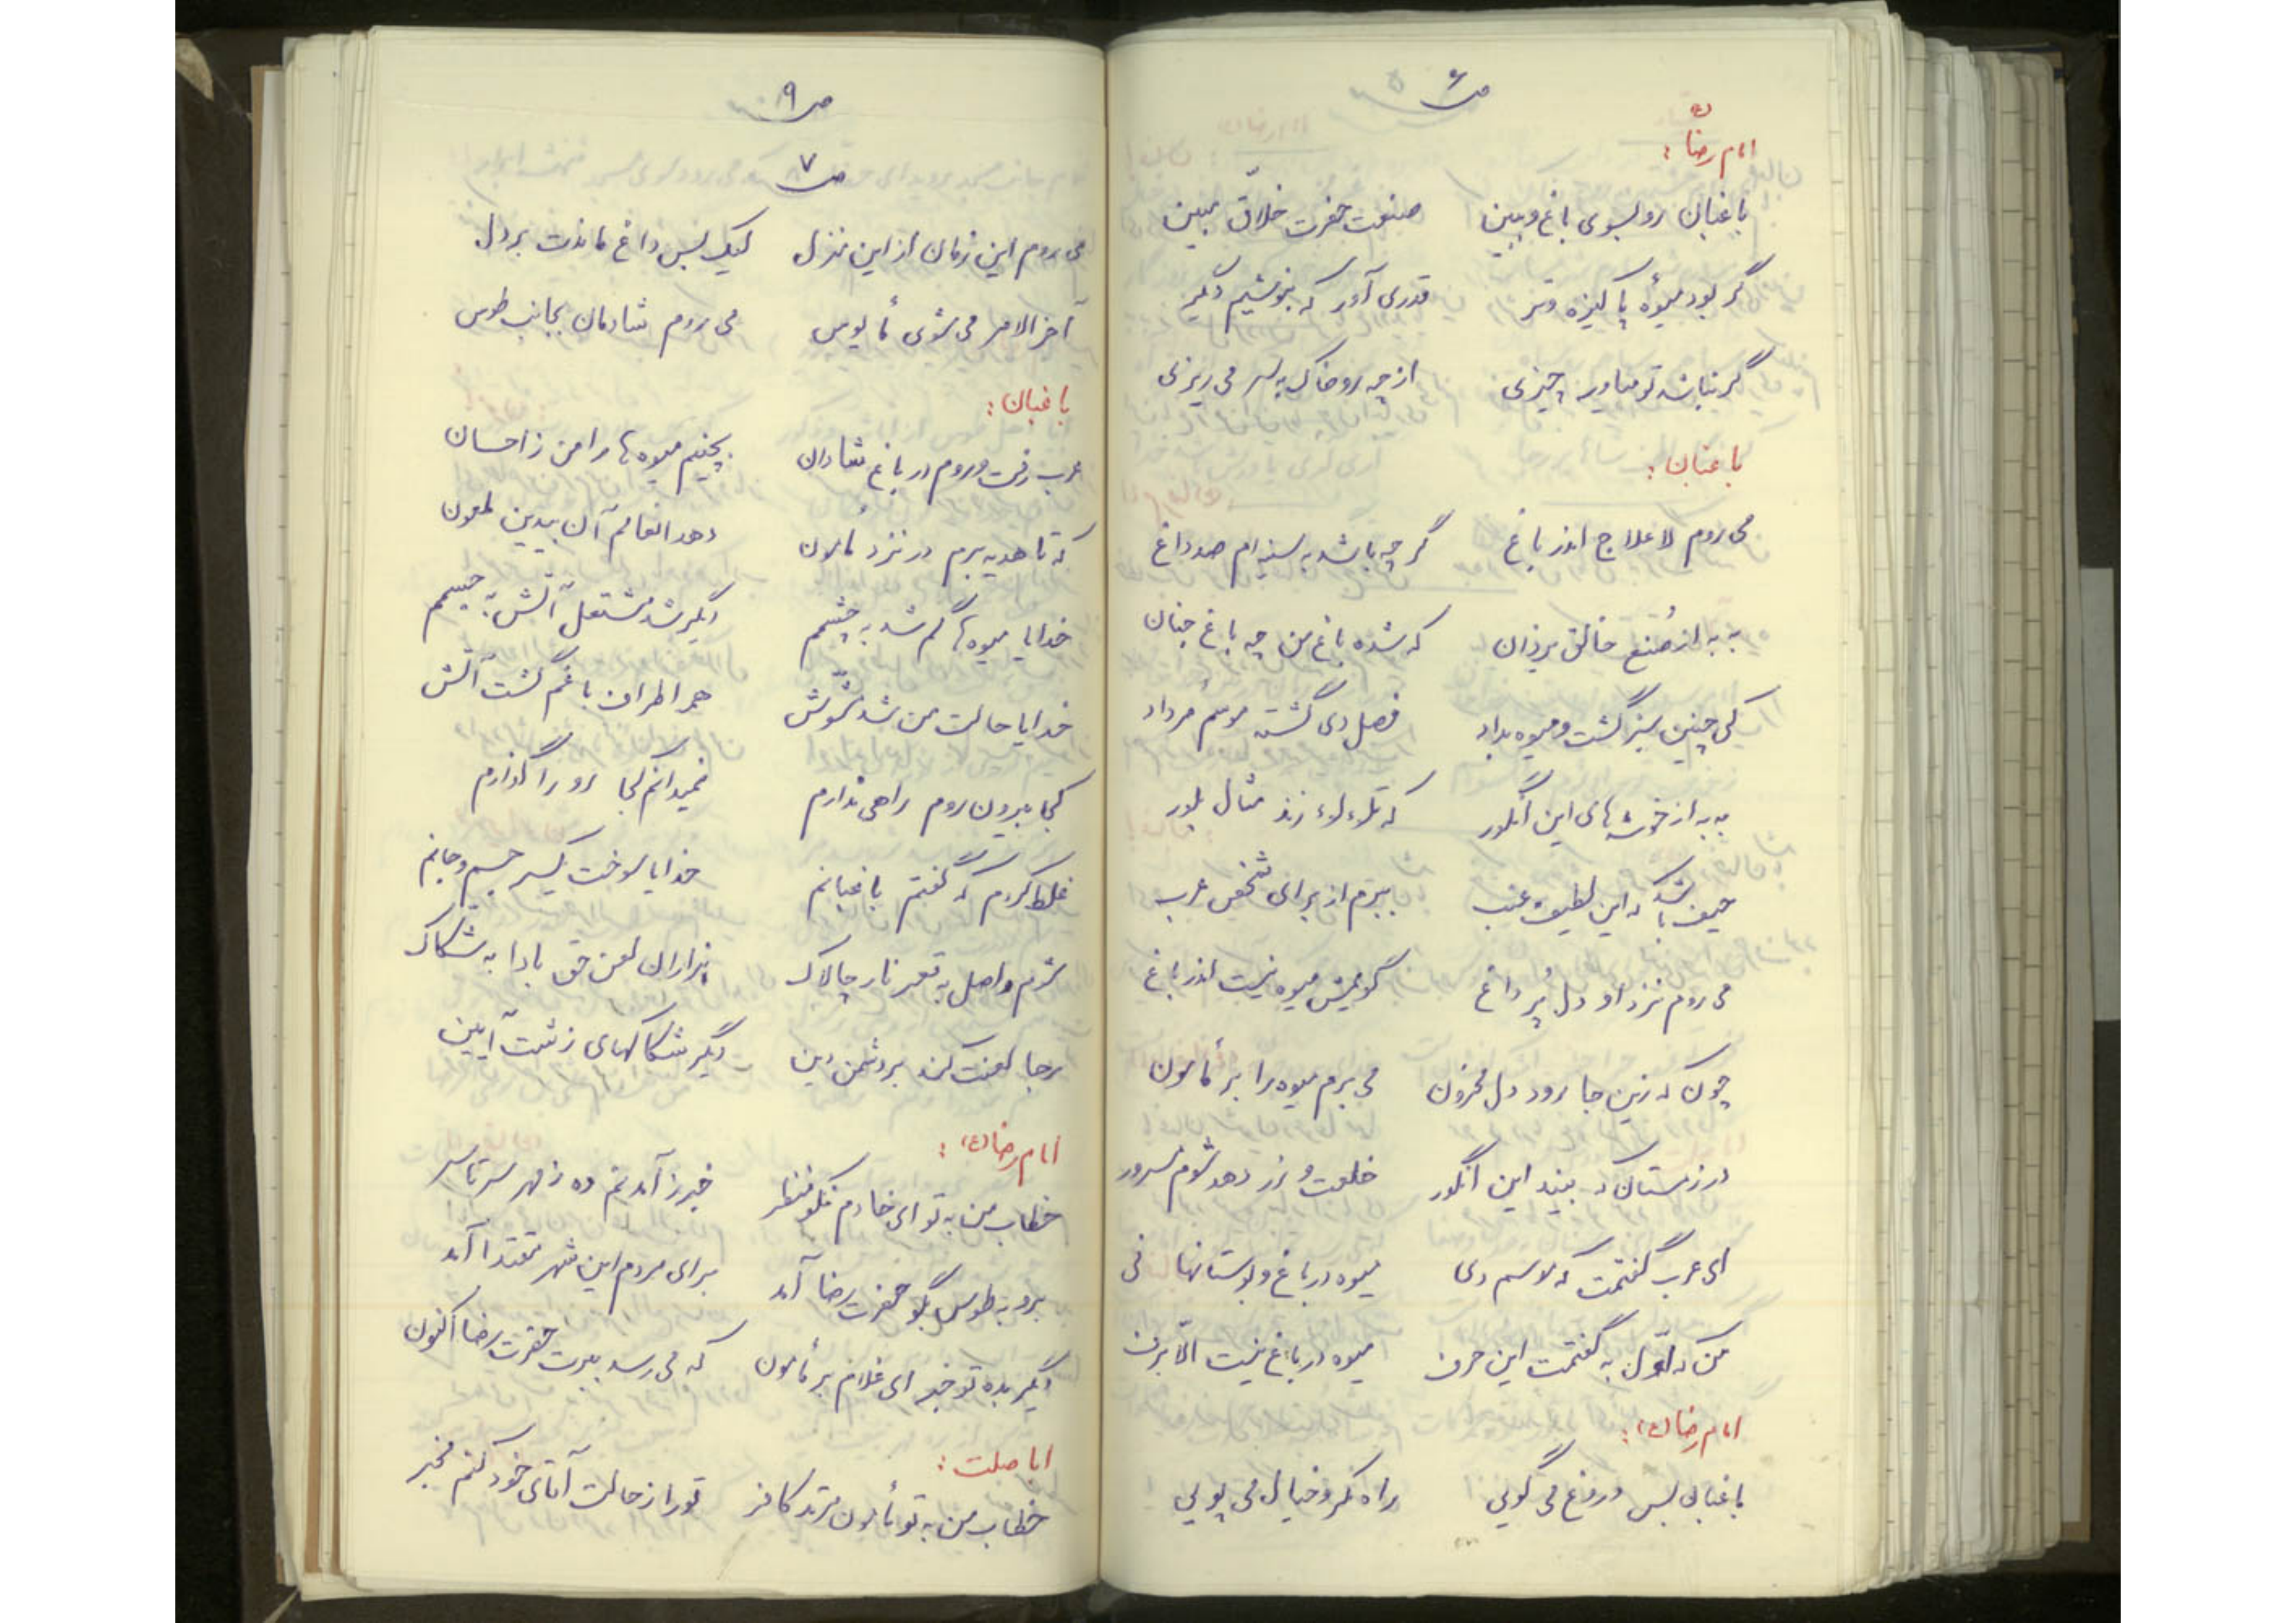 ص۶
امام رضا (ع):
باغبان رو بسوی باغ و ببین صنعت حضرت خلّاق مبین
گر بود میوهٔ پاکیزه و تر قدری آور که بنوشیم دگر
گر نباشد تو میاور چیزی از چه رو خاک به سر می ریزی
باغبان:
می روم لاعلاج اندر باغ گر چه باشد به سینه ام صد داغ
به به از صُنع خالق یزدان که شده باغ من چه باغ جنان
کی چنین سبز گشت و میوه بداد فصل دی گشته موسم مُرداد
به به از خوشه های این انگور که تلاءلاء زند مثال بلور
حیف باشد که این لطیف عنب ببرم از برای شخص عرب
می روم نزد او دل پُر داغ گویمش میوه نیست اندر باغ
چون که زین جا رود دل محزون می برم میوه را بر مأمون
در زمستان که بیند این انگور خلعت و زر دهد شوم مسرور
ای عرب گفتمت که موسم دی میوه در باغ و بوستانها نی
من که اوّل به گفتمت این حرف میوه در باغ نیست الّا برف
امام رضا (ع):
باغبان بس دروغ می گویی راه مکر و خیال می پویی
ص۹
ص۷
می روم این زمان از این منزل لیک بس داغ ماندت بر دل
آخر الامر می شوی مأیوس می روم شادمان بجانب طوس
باغبان:
عرب رفت و روم در باغ شادان بچینم میوه ها را من ز احسان
که تا هدیه برم در نزد مأمون دهد انعامم آن بیدین ملعون
خدایا میوه ها گم شد به چشمم دگر شد مشتعل آتش به جسمم
خدایا حالت من شد مشوّش همه اطراف باغم گشت آتش
کجا بیرون روم راهی ندارم نمیدانم کجا رو را گذارم
غلط کردم که گفتم باغبانم خدایا سوخت یکسر جسم و جانم
شدم واصل به قعر نار چالاک هزاران لعن حق بادا به شکاک
رجا لعنت کند بر دشمن دین دگر شکاکهای زشت آیین
امام رضا (ع):
خطاب من به تو ای خادم نکو منظر خبر ز آمدنم ده ز مهر سرتاسر
برو به طوس بگو حضرت رضا آمد برای مردم این شهر مقتدا آمد
دگر بده تو خبر ای غلام بر مأمون که می رسد ببرت حضرت رضا اکنون
اباصلت:
خطاب من به تو مأمون مرتد کافر تو را ز حالت آقای خود کنم مخبر